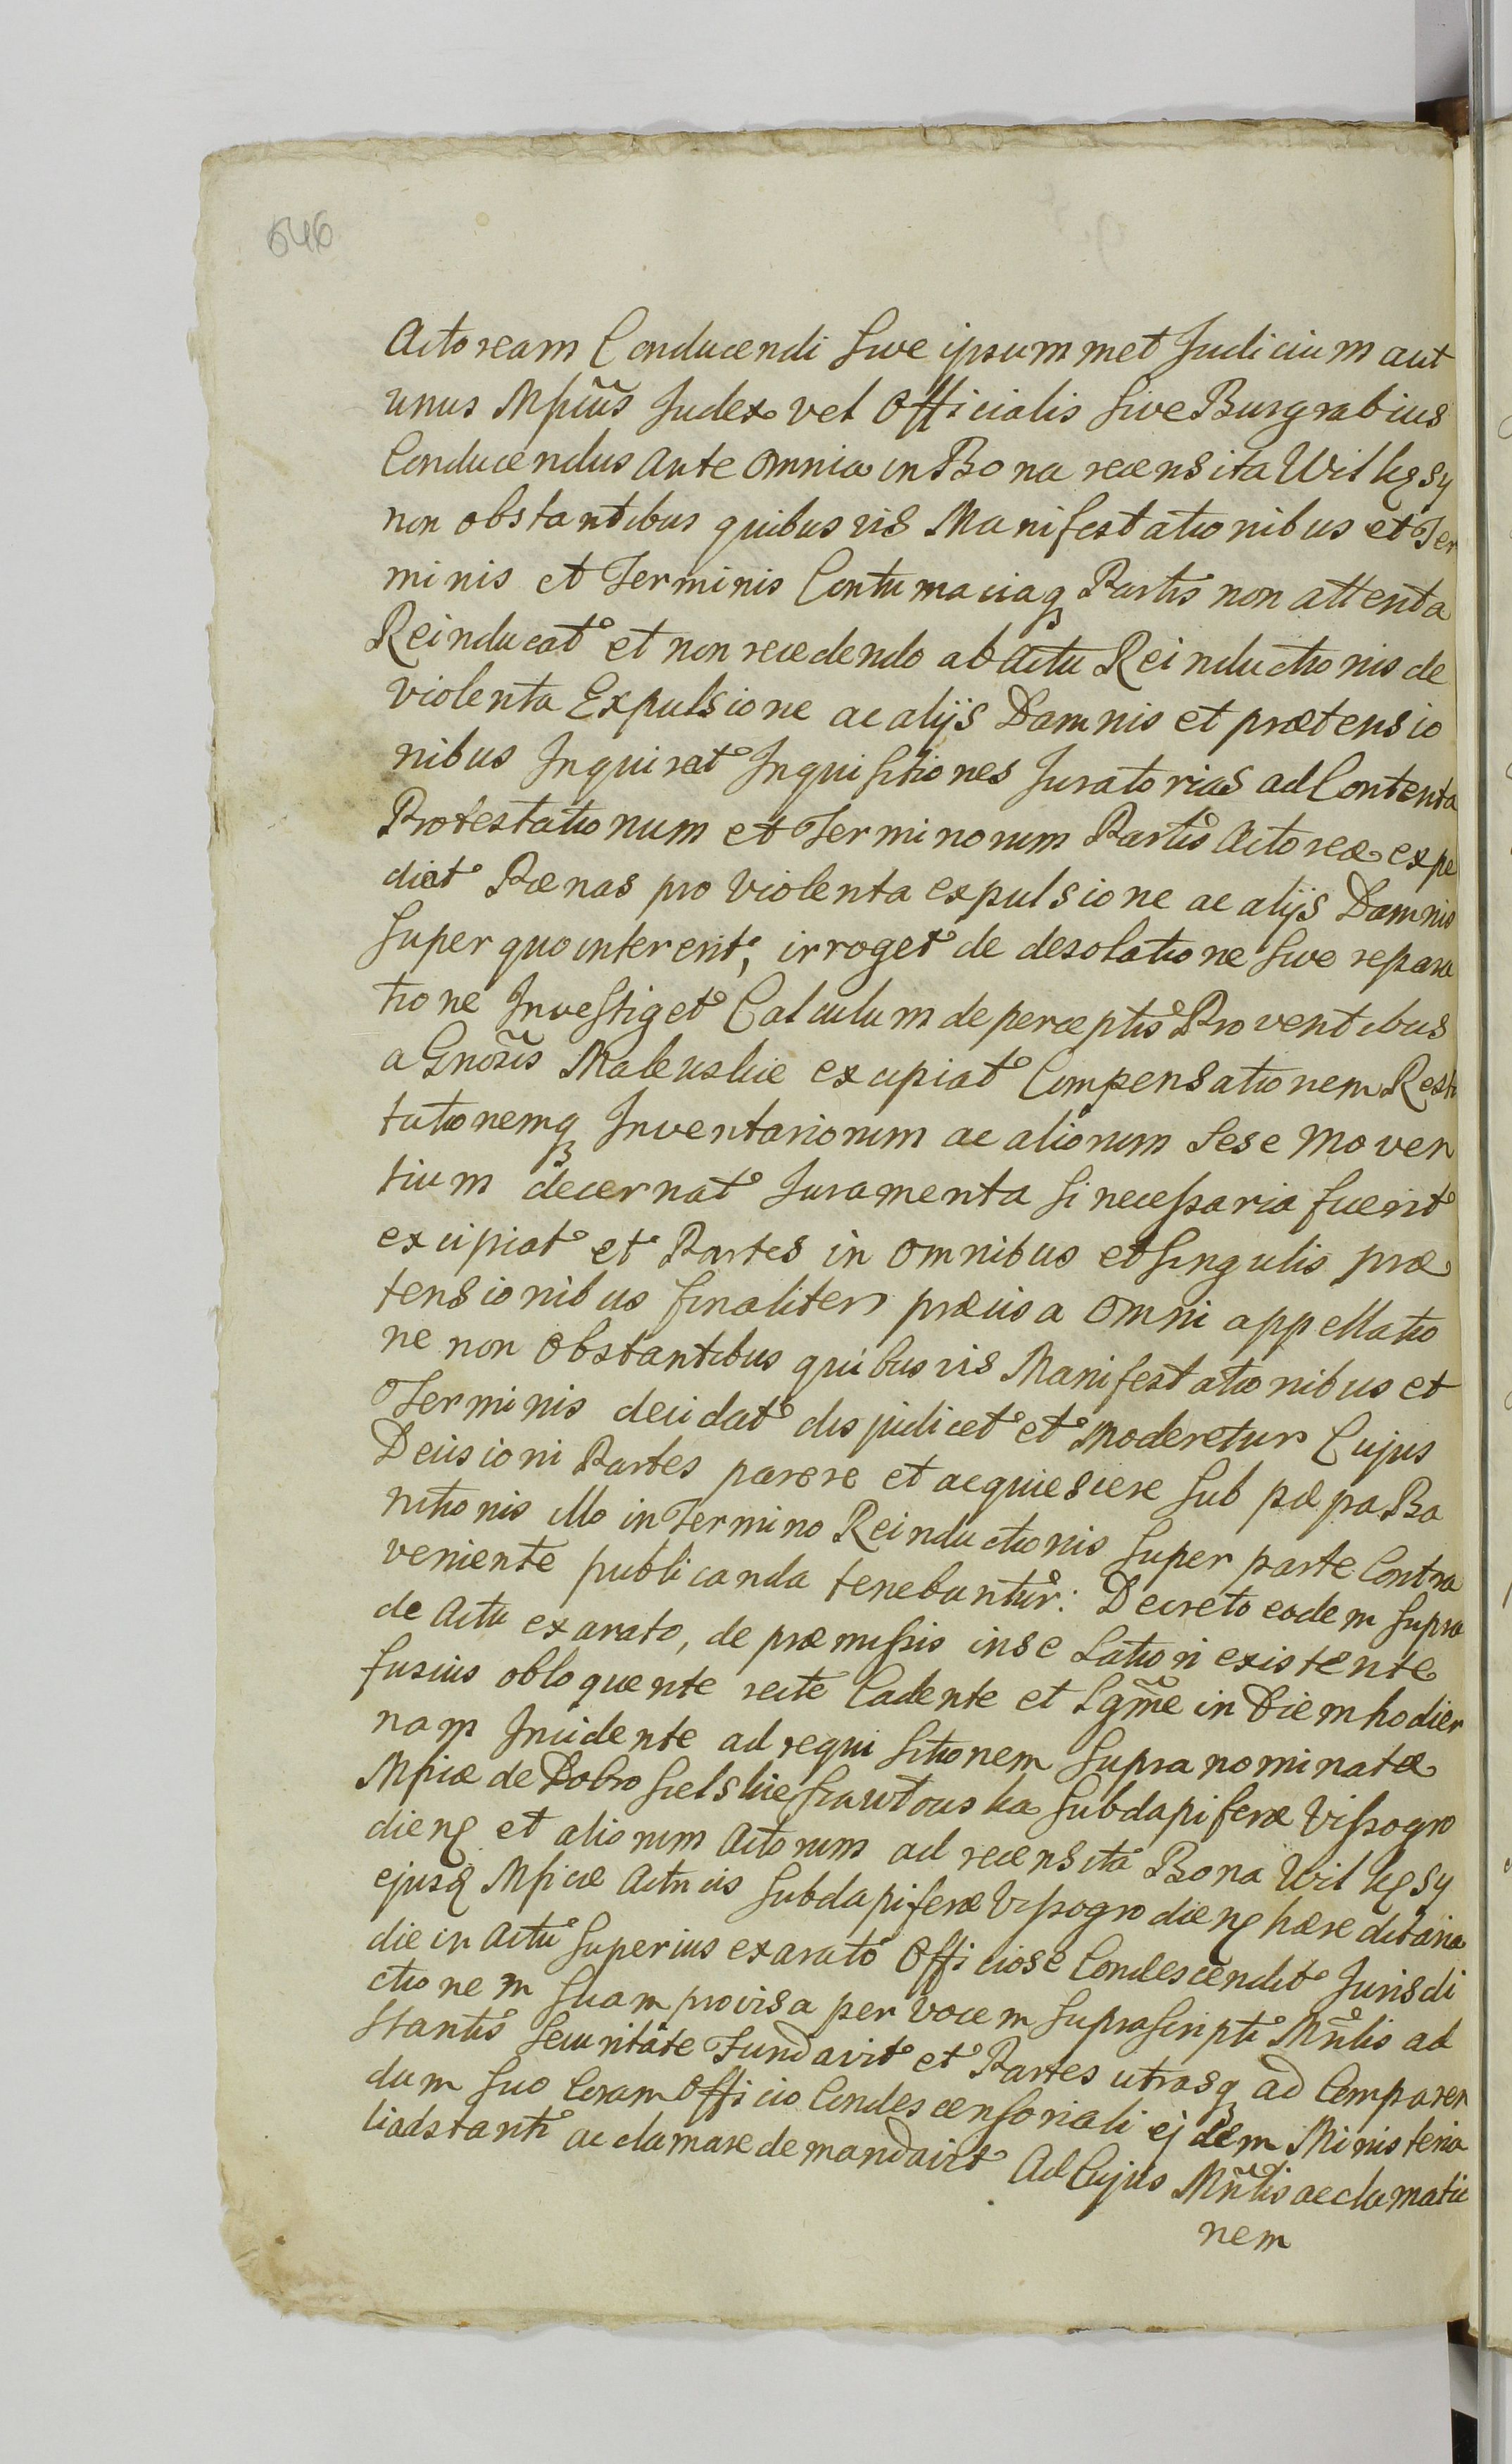 646
Actoream Conducendi sive ipsummet Judicium aut
unus Mpicus Judex vel Officialis sive Burgrabius
Conducendus ante omnia in Bona recensita Wilkęsy
non obstantibus quibusvis Manifestationibus et Ter
minis et Terminis Contumaciaq Partis non attenta
Reinducat et non recedendo ab actu Reinductionis de
violenta Expulsione ac alijs Damnis et prætensio
nibus Inquirat Inquisitiones Juratorias ad Contenta
Protestationum et Terminorum Partis Actoreæ expe
diat Pænas pro violenta expulsione ac alijs Damnis
super quo intererit, irroget de desolatione sive repara
tione Investiget Calculum de perceptis Proventibus
a Gnosis Maleuskie excipiat Compensationem Resti
tutionemq Inventariorum ac aliorum sese moven
tium decernat Juramenta si necessaria fuerit
excipiat et Partes in omnibus et singulis præ
tensionibus finaliter præcisa omni appellatio
ne non obstantibus quibusvis Manifestationibus et
Terminis decidat disjudicet et moderetur Cujus
Decisioni Partes parere et acquiescere sub pæna Ba
nitionis illo in Termino Reinductionis super parte Contra
veniente publicanda tenebuntur: Decreto eodem supra
de actu exarato, de præmissis in se Latiori existente
fusius obloquente recte Cadente et Lgme in Diem hodier
nam Incidente ad requisitionem supra nominatæ
Mpicæ de Dobrosielskie subdapiferæ Vissogro
dienę et aliorum Actorum ad recensita Bona Wilkęsy
ejusq Mpicæ Actricis subdapiferæ Vissogrodienę hæreditaria
die in actu superius exarato Officiose Condescendit Jurisdi
ctionem suam provisa per vocem suprascripti Mnlis ad
stantis securitate Fundavit et Partes utrasq ad Comparen
dum suo Coram Officio Condescensoriali ejdem Ministeria
li adstanti acclamare demandavit Ad Cujus Mnlis acclamatio
nem